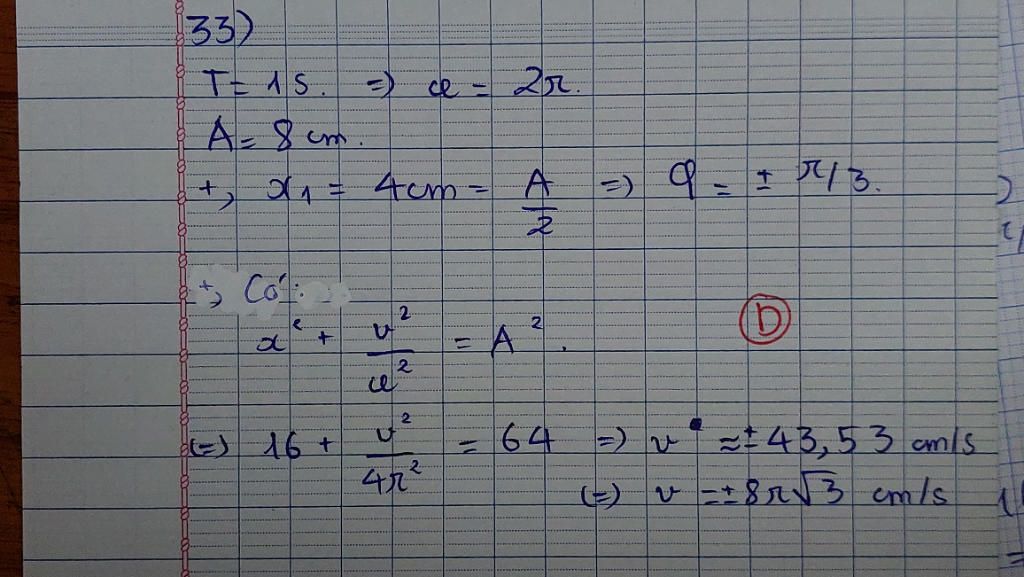 33)
T = 1s. => ω = 2π.
A = 8 cm.
+, x₁ = 4cm = A/2 => φ = ± π/3.
+, Có:
x² + v²/ω² = A².
D
(=) 16 + v²/4π² = 64 => v ≈ ± 43,53 cm/s
(=) v = ± 8π√3 cm/s